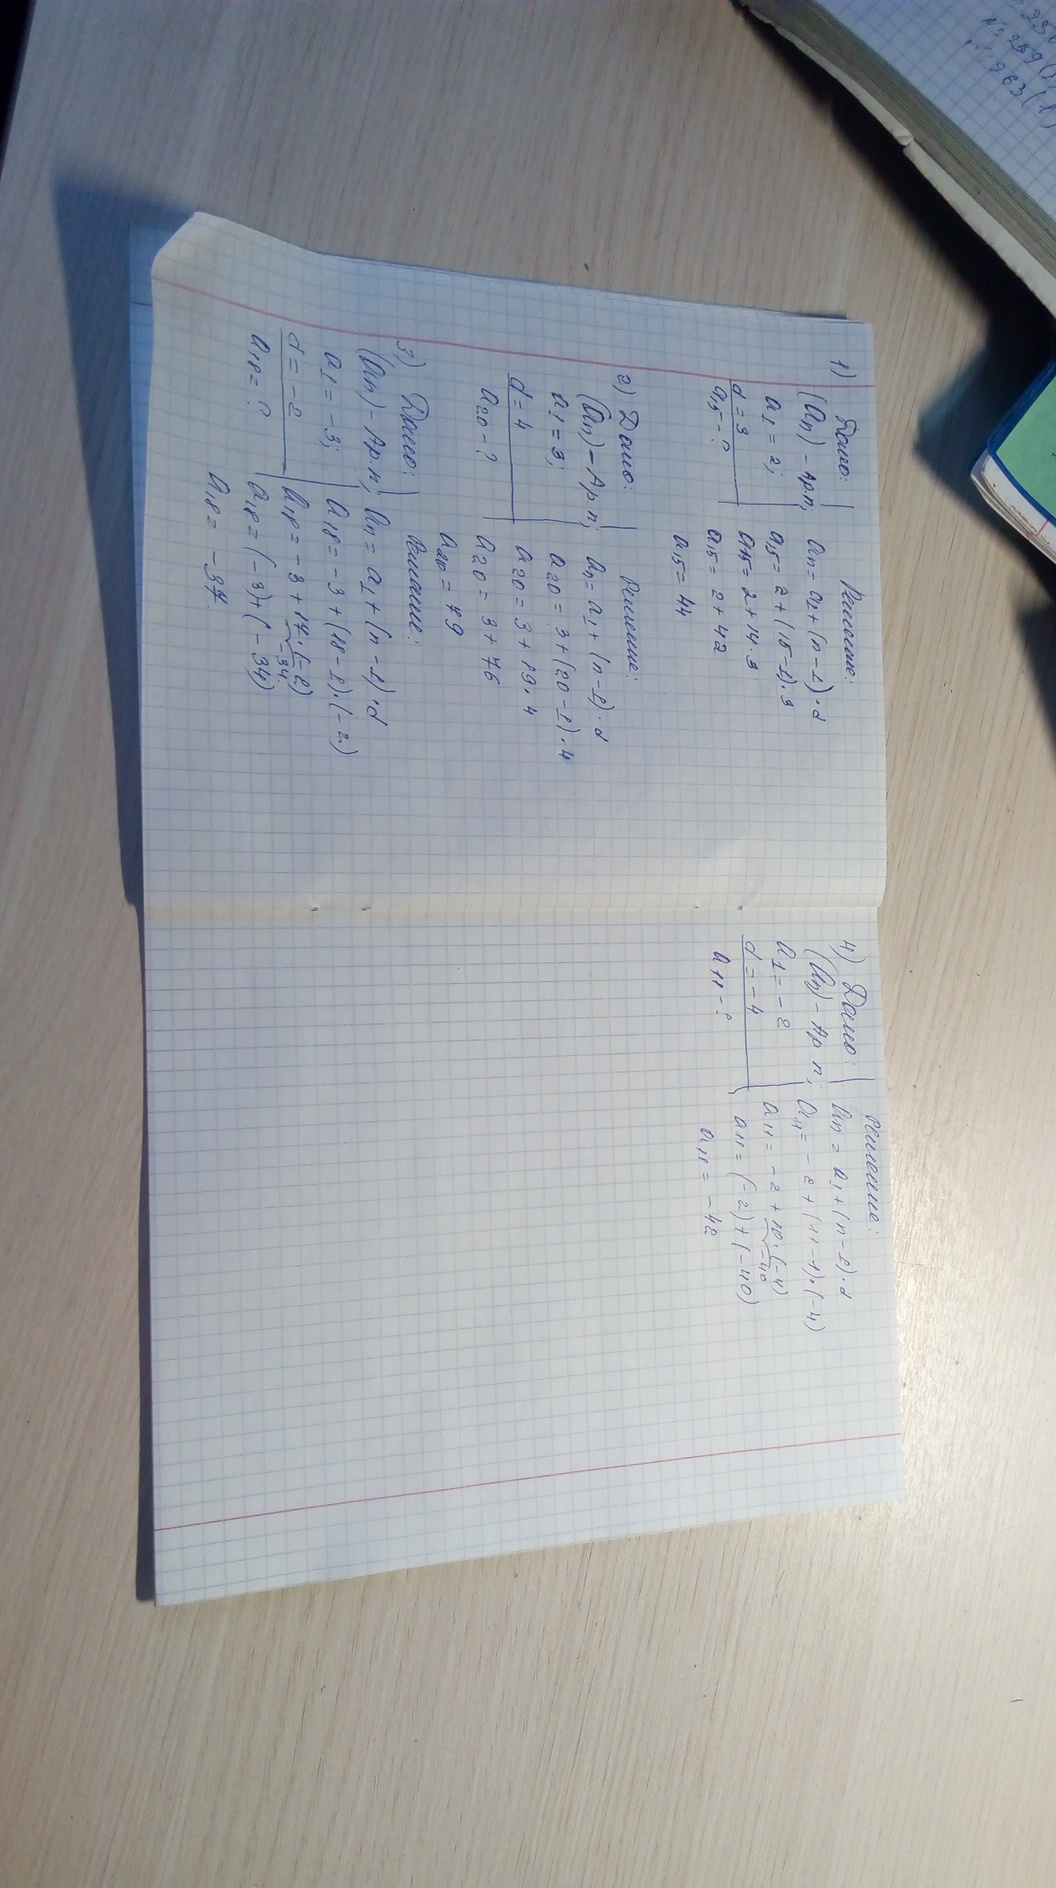 1) Дано:
(an) - Ар.п,
a1 = 2;
d = 3
a15 - ?
Решение:
an = a1 + (n-1)·d
a15 = 2 + (15-1)·3
a15 = 2 + 14·3
a15 = 2 + 42
a15 = 44
2) Дано:
(an) - Ар.п,
a1 = 3;
d = 4
a20 - ?
Решение:
an = a1 + (n-1)·d
a20 = 3 + (20-1)·4
a20 = 3 + 19·4
a20 = 3 + 76
a20 = 79
3) Дано:
(an) - Ар.п;
a1 = -3;
d = -2
a18 = ?
Решение:
an = a1 + (n-1)·d
a18 = -3 + (18-1)·(-2)
a18 = -3 + 17·(-2)
-34
a18 = (-3) + (-34)
a18 = -37.
4) Дано:
(an) - Ар п;
a1 = -2
d = -4
a11 - ?
Решение:
an = a1 + (n-1)·d
a11 = -2 + (11-1)·(-4)
a11 = -2 + 10·(-4)
-40
a11 = (-2) + (-40)
a11 = -42
№259(1
263(1)